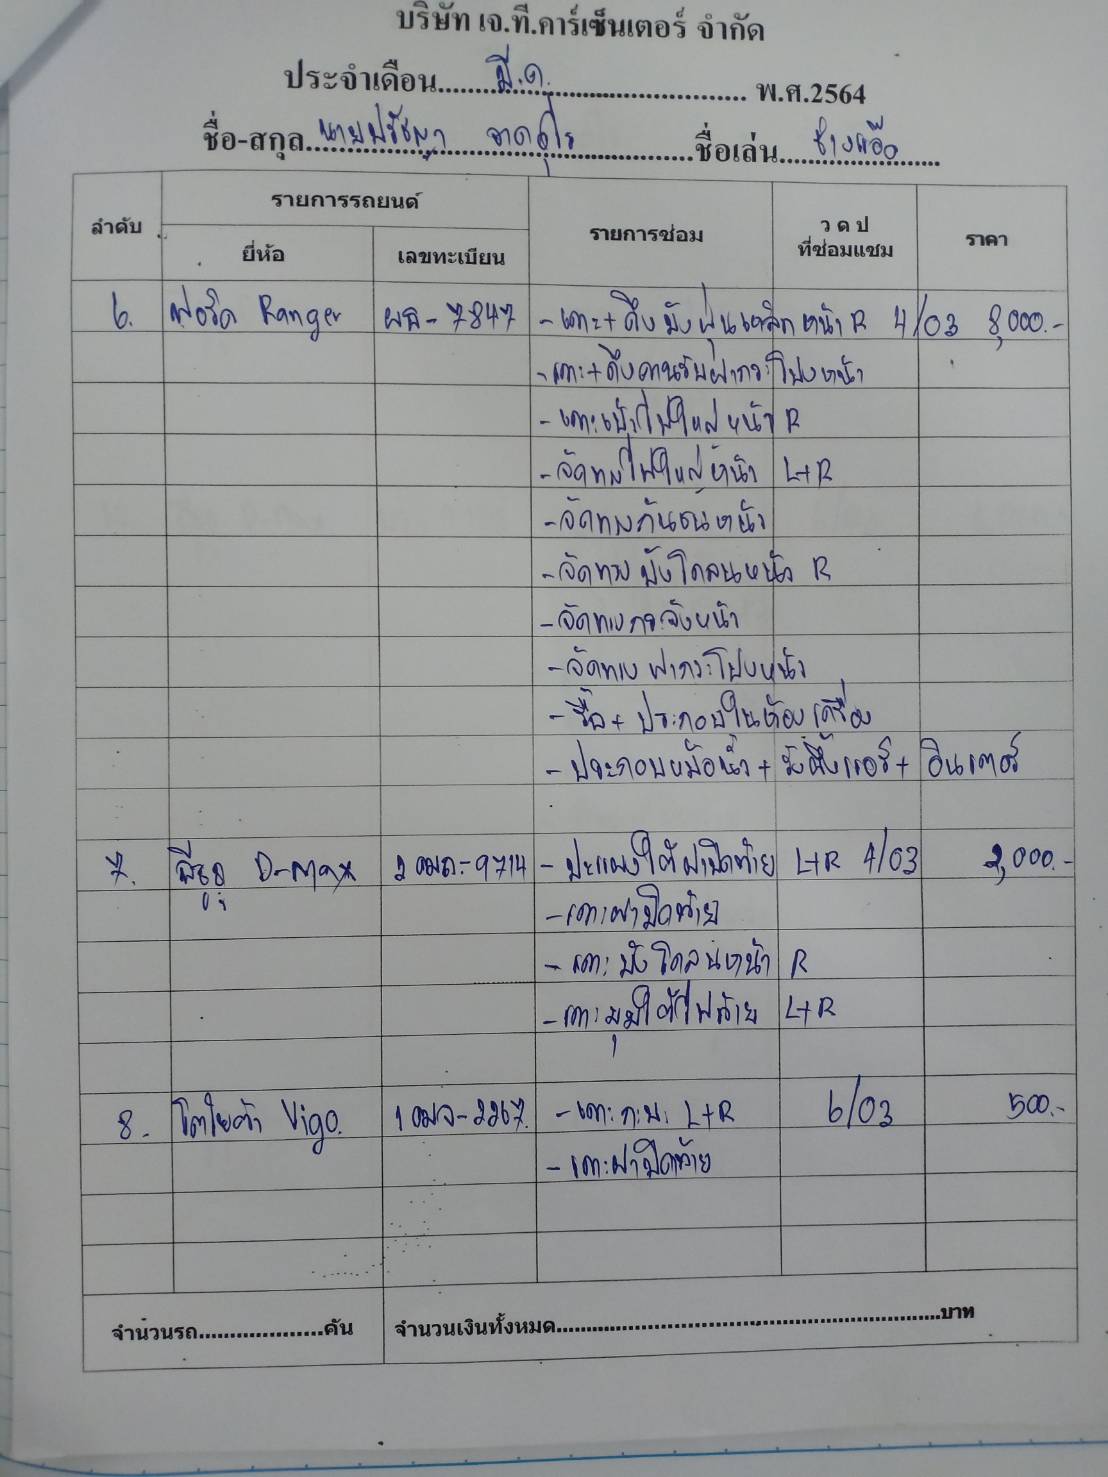 บริษัท เจ.ที.คาร์เซ็นเตอร์ จำกัด
ประจำเดือน.....มี.ค.....พ.ศ.2564
ชื่อ-สกุล.....นายปรัชญา.....ชื่อเล่น.....ช่างแอ๊ด
ลำดับ รายการรถยนต์ รายการซ่อม ว ด ป ที่ซ่อมแซม ราคา
ยี่ห้อ เลขทะเบียน
6. ฟอร์ด Ranger ผธ-7847 -เคาะ+ดึงบังฝุ่นเหล็กหน้า R 4/03 8,000.-
-เคาะ+ดึงคานรับฝากระโปงหน้า
-เคาะเบ้าไฟใหญ่หน้า R
-จัดทรงไฟใหญ่หน้า L+R
-จัดทรงกันชนหน้า
-จัดทรงบังโคลนหน้า R
-จัดทรงกระจังหน้า
-จัดทรงฝากระโปงหน้า
-รื้อ+ประกอบในห้องเครื่อง
-ประกอบหม้อน้ำ+รังผึ้งแอร์+อินเตอร์
7. อีซูซุ D-max 2ฒถ-9714 -ปะแผงใต้ฝาปิดท้าย L+R 4/03 2,000.-
-เคาะฝาปิดท้าย
-เคาะบังโคลนหน้า R
-เคาะมุมใต้ไฟท้าย L+R
8. โตโยต้า Vigo. 1ฒจ-2267 -เคาะกะบะ L+R 6/03 500.-
-เคาะฝาปิดท้าย
จำนวนรถ....................คัน จำนวนเงินทั้งหมด..............................บาท